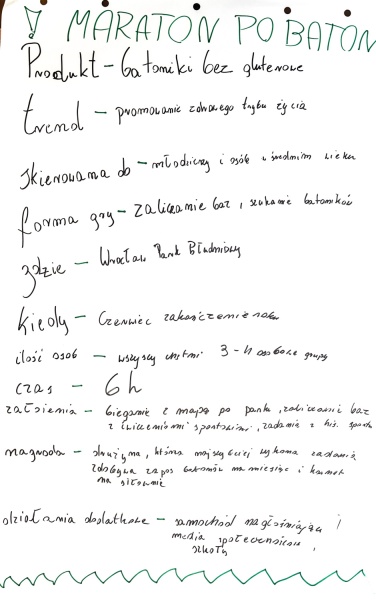 ! MARATON PO BATON
Produkt - batoniki bez glutenowe
trend - promowanie zdrowego trybu życia
skierowana do - młodzieży i osób w średnim wieku
forma gry - zaliczanie baz, szukanie batoników
gdzie - Wrocław Park
kiedy - Czerwiec zakończenie roku
ilość osób - wszyscy chętni 3-4 osobowe grupy
czas - 6h
założenia - bieganie z mapą po parku, zaliczanie baz
z ćwiczeniami sportowymi, zadania z his. sportu
nagroda - drużyna, która najszybciej wykona zadania
zdobywa zapas batonów na miesiąc i karnet
na siłownie
działania dodatkowe - samochód nagłaśniający
media społecznościowe,
szkoły